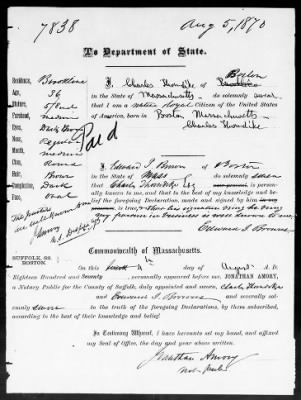 7838
Aug 5, 1870
To Department of State.
Residence, Brookline
Age, 36
Stature,
Forehead, medium
Eyes, Dark Brown
Nose, Regular
Mouth, medium
Chin, Round
Hair, Brown
Complexion, Dark
Face, Oval
Paid
I, Charles Thorndike of Boston
in the State of Massachusetts do solemnly swear
that I am a native loyal Citizen of the United States
of America, born in Boston Massachusetts
Charles Thorndike
I, Edward I. Browne of Boston
in the State of Mass do solemnly swear
that Charles Thorndike Esq is person-
ally known to me, and that to the best of my knowledge and be-
lief the foregoing Declaration, made and signed by him
Edward I. Browne
Commonwealth of Massachusetts.
SUFFOLK, SS.
BOSTON.
On this day of August A. D.
Eighteen Hundred and Seventy, personally appeared before me, JONATHAN AMORY,
a Notary Public for the County of Suffolk, duly appointed and sworn, Charles Thorndike
and Edward I. Browne and severally sol-
emnly swore to the truth of the foregoing Declarations, by them subscribed,
according to the best of their knowledge and belief.
In Testimony Whereof, I have hereunto set my hand, and affixed
my Seal of Office, the day and year last above written.
Jonathan Amory
Not. Public